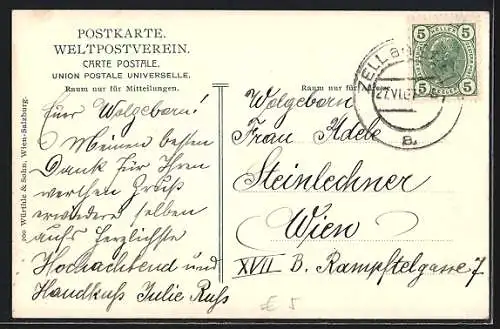 POSTKARTE.
WELTPOSTVEREIN.
CARTE POSTALE.
UNION POSTALE UNIVERSELLE.
Raum nur für Mitteilungen.
Euer Wolgeboren!
Meinen besten
Dank für Ihren
werthen Gruß
erwidere selben
aufs herzlichste
Hochachtend und
Handkuß Julie Ruß
Würthle & Sohn, Wien-Salzburg.
Raum nur für
5 5
5 5
ZELL a.
27.VI.07
a.
Wolgeboren
Frau Adele
Steinlechner
Wien
XVII B. Rampftelgasse 7
€ 5